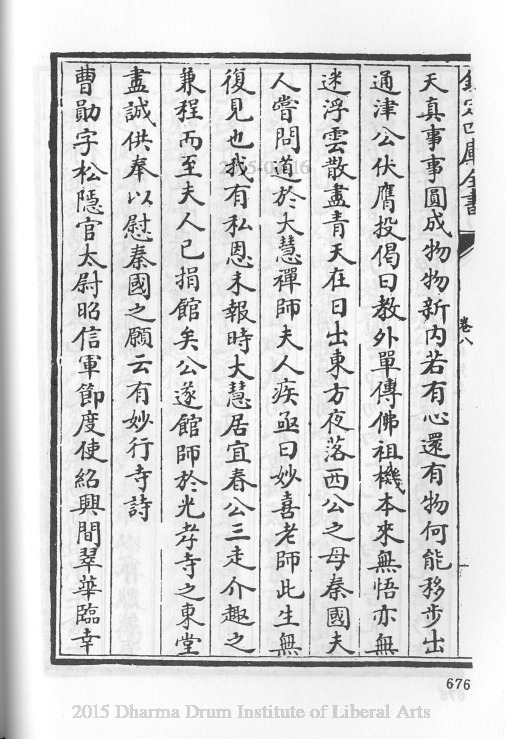 欽定四庫全書
卷八
天真事事圓成物物新内若有心還有物何能移步出
通津公伏膺投偈曰教外單傳佛祖機本來無悟亦無
迷浮雲散盡青天在日出東方夜落西公之母秦國夫
人嘗問道於大慧禪師夫人疾亟曰妙喜老師此生無
復見也我有私恩未報時大慧居宜春公三走介趣之
兼程而至夫人已捐館矣公遂館師於光孝寺之東堂
盡誠供奉以慰秦國之願云有妙行寺詩
曹勛字松隱官太尉昭信軍節度使紹興間翠華臨幸
676
2015 Dharma Drum Institute of Liberal Arts